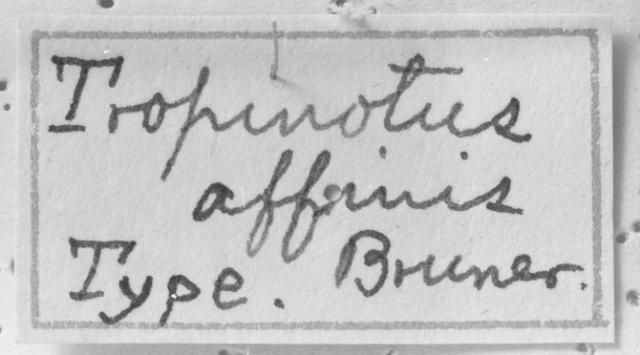 Tropinotus
affinis
Type. Bruner.